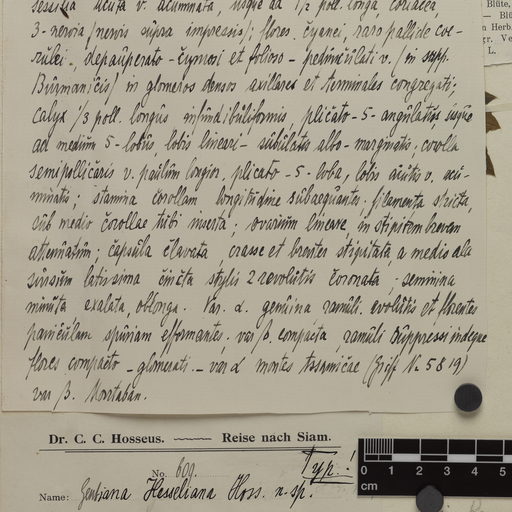 sessilia acuta v. acuminata, usque ad 1½ poll. longa coriacea,
3-nervia /nervis supra impressis/; flores čyanei, raro pallide coe-
rulei-, depauperato-čymosi et folioso-pedunčulati v. /in supp.
Burmaničis/ in glomeros densos axillares et terminales congregati;
calyx ⅓ poll. longus infundibuliformis, plicato-5-angulatus, usque
ad medium 5-lobus lobis lineari-subulatis albo-marginatis, corolla
semipolličaris v. paullum longior, plicato-5-loba, lobis acutis v. acu-
minatis; stamina čorollam longitudine subaequantes, filamenta stricta,
sub medio čorollae tubi inserta; ovarium lineare in stipitem brevem
attenuatum; čapsula člavata, crasse et breviter stipitata, a medio ala
sursum latissima čincta stylis 2 revolutis čoronata; semina
minuta exalata, oblonga. Var. α. genuina ramuli evolutis et florentes
paničulam spuriam efformantes. var β. compacta ramuli suppressi indeque
flores compacto-glomerati. - var α montes tassamicae (Griff No. 5819)
var β. Mourtaban.
Blüte,
— Blü
n Herb.
gr. Ve
L.
Dr. C. C. Hosseus. Reise nach Siam.
No. 609. Typ.!
Name: Gentiana Hesseliana Hoss. n. sp.
0 1 2 3 4 5
cm